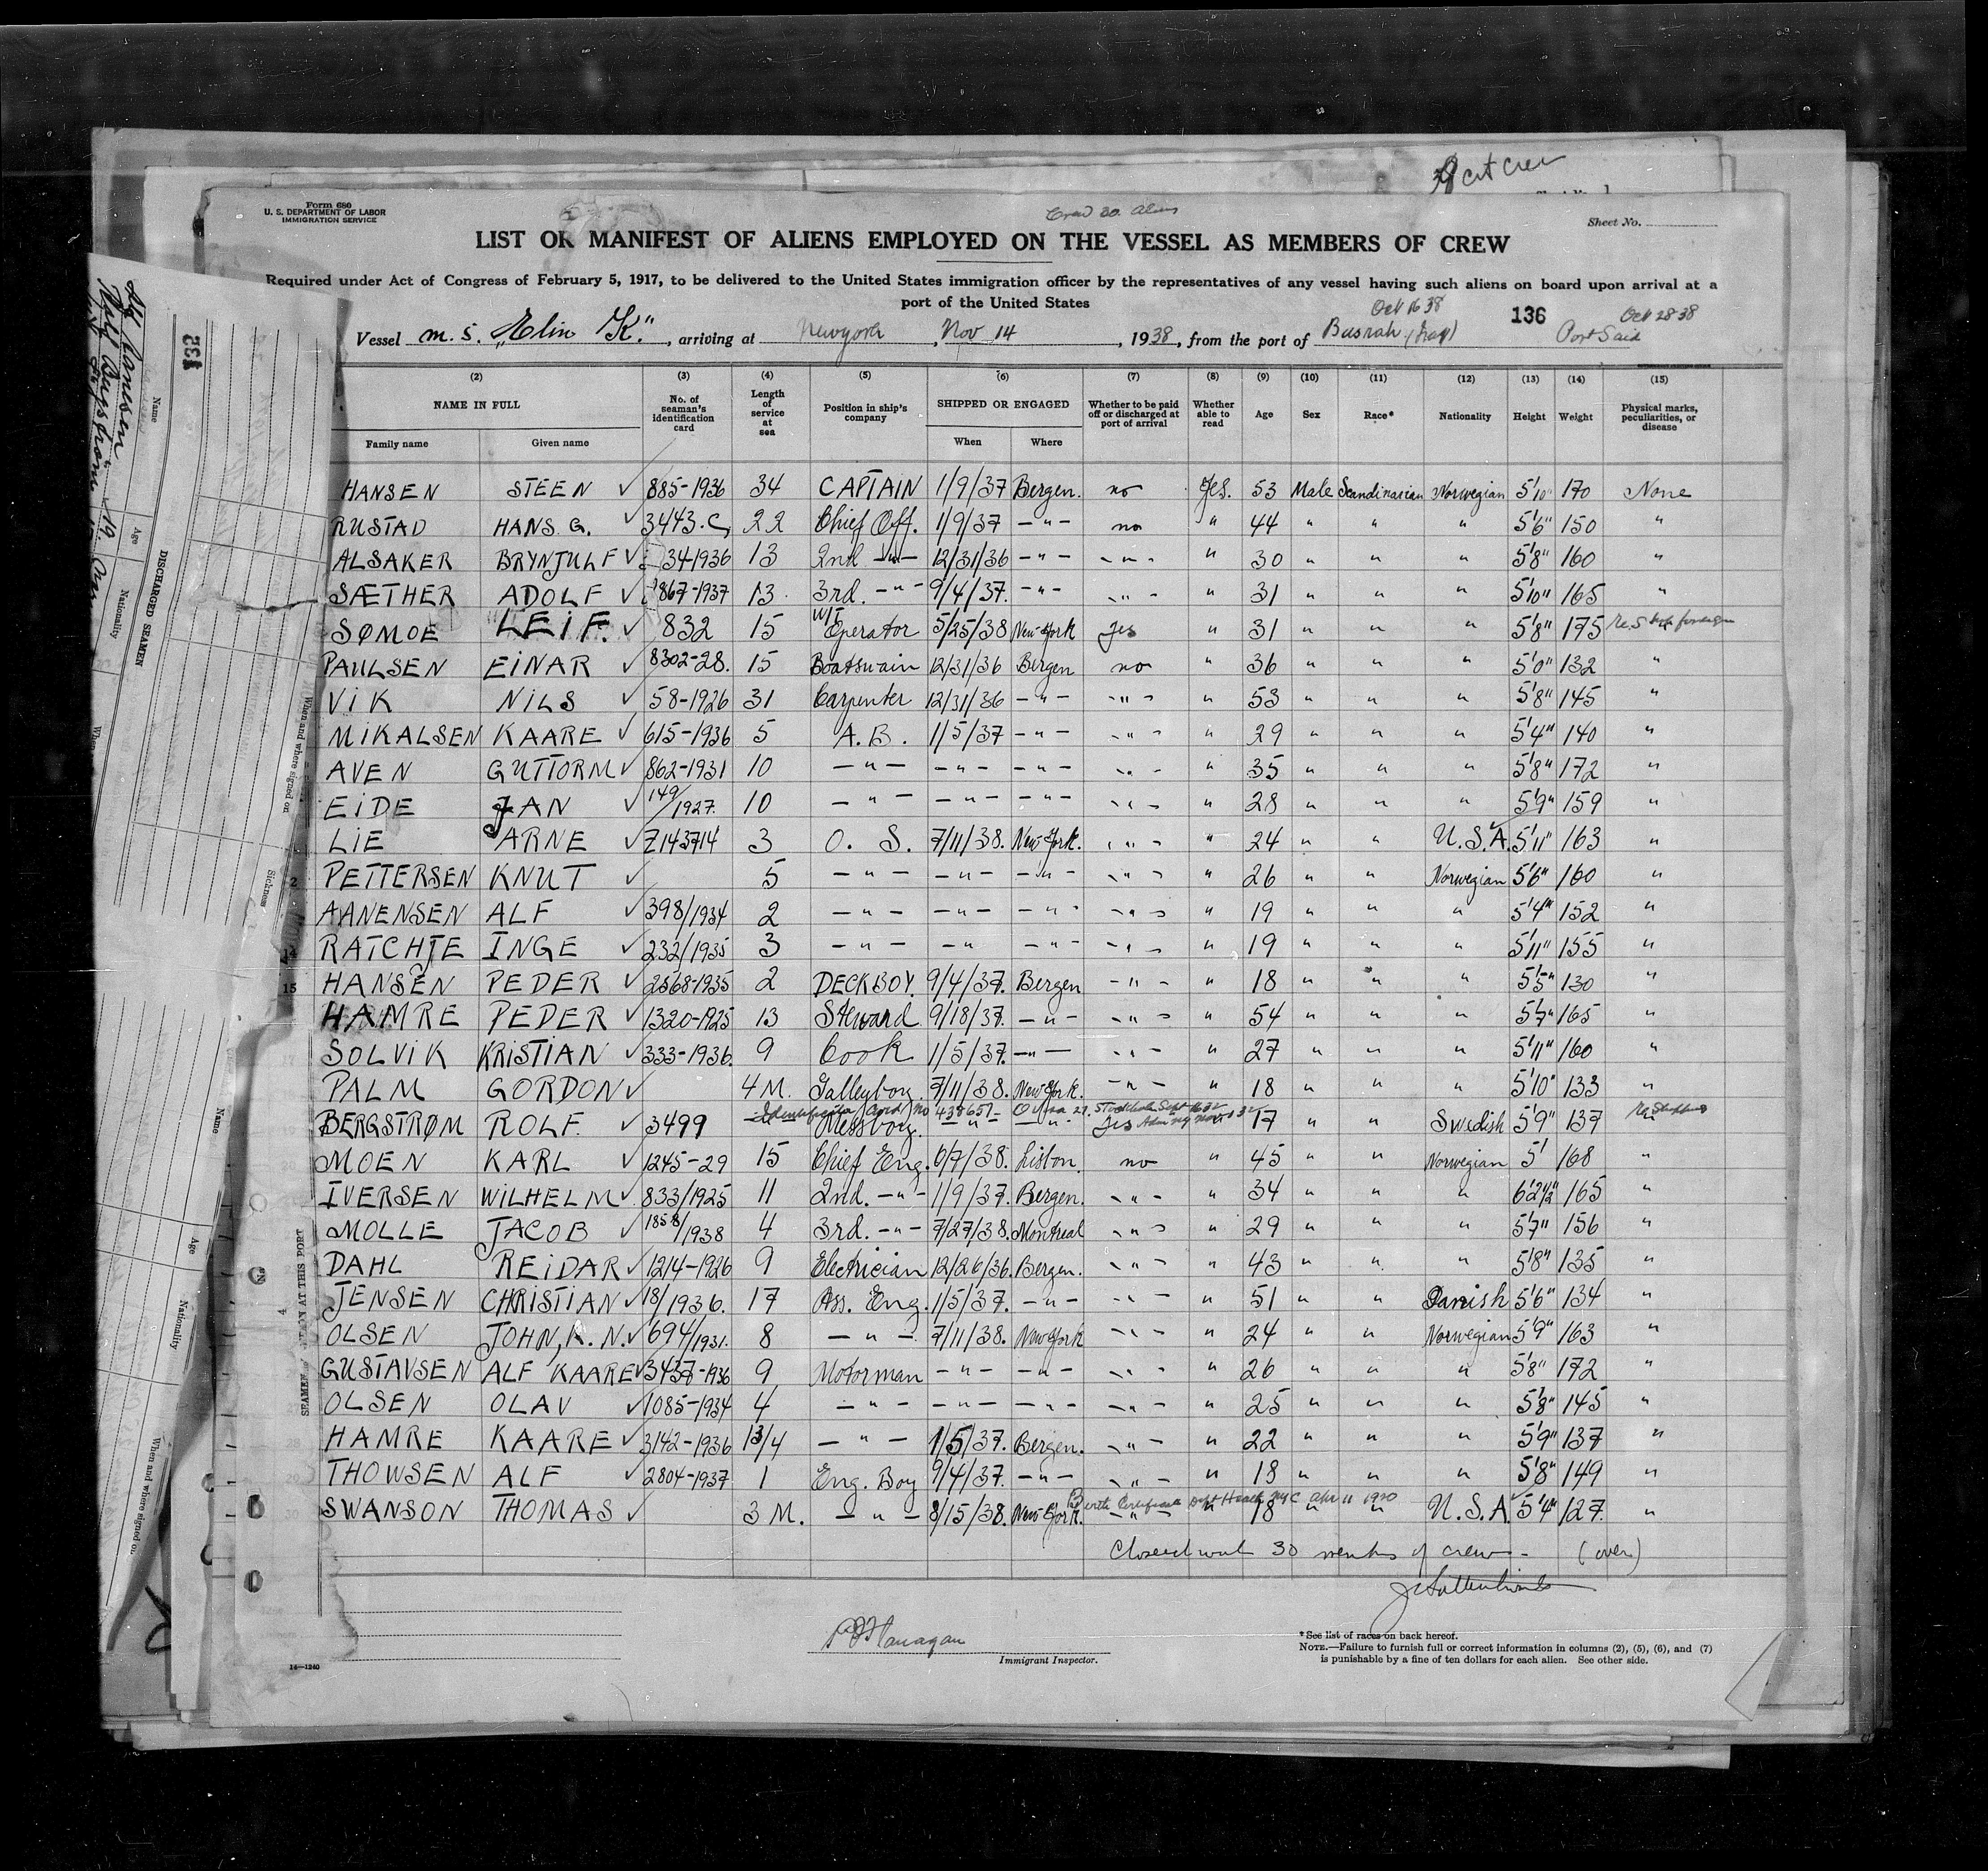 Form 680
U. S. DEPARTMENT OF LABOR
IMMIGRATION SERVICE
Crew 30 Aliens
Sheet No.
LIST OR MANIFEST OF ALIENS EMPLOYED ON THE VESSEL AS MEMBERS OF CREW
Required under Act of Congress of February 5, 1917, to be delivered to the United States immigration officer by the representatives of any vessel having such aliens on board upon arrival at a
port of the United States
Oct 16 38 136 Oct 28 38
Vessel m. s. „Elin K.", arriving at Newyork, Nov 14, 1938, from the port of Busrah Port Said
(2) (3) (4) (5) (6) (7) (8) (9) (10) (11) (12) (13) (14) (15)
NAME IN FULL No. of seaman's identification card Length of service at sea Position in ship's company SHIPPED OR ENGAGED Whether to be paid off or discharged at port of arrival Whether able to read Age Sex Race* Nationality Height Weight Physical marks, peculiarities, or disease
Family name Given name When Where
HANSEN STEEN ✓ 885-1936 34 CAPTAIN 1/9/37 Bergen. no Yes. 53 Male Scandinavian Norwegian 5'10" 170 None
RUSTAD HANS G. ✓ 3443. 22 Chief Off. 1/9/37 -"- no " 44 " " " 5'6" 150 "
ALSAKER BRYNJULF ✓ 34-1936 13 2nd -"- 12/31/36 -"- -"- " 30 " " " 5'8" 160 "
SÆTHER ADOLF ✓ 867-1937 13 3rd. -"- 9/4/37. -"- -"- " 31 " " " 5'10" 165 "
SØMOE LEIF. ✓ 832 15 W/T Operator 5/25/38 New-York Yes " 31 " " " 5'8" 175
PAULSEN EINAR ✓ 8302-28. 15 Boatswain 12/31/36 Bergen no " 36 " " " 5'0" 132 "
VIK NILS ✓ 58-1926 31 Carpenter 12/31/36 -"- -"- " 53 " " " 5'8" 145 "
MIKALSEN KAARE ✓ 615-1936 5 A.B. 1/5/37 -"- -"- " 29 " " " 5'4" 140 "
AVEN GUTTORM ✓ 862-1931 10 -"- -"- -"- -"- " 35 " " " 5'8" 172 "
EIDE JAN ✓ 149/1927. 10 -"- -"- -"- -"- " 28 " " " 5'9" 159 "
LIE ARNE ✓ Z143714 3 O. S. 7/11/38. New-York. -"- " 24 " " U.S.A. 5'11" 163 "
PETTERSEN KNUT ✓ 5 -"- -"- -"- -"- " 26 " " Norwegian 5'6" 160 "
AANENSEN ALF ✓ 398/1934 2 -"- -"- -"- -"- " 19 " " " 5'4" 152 "
14 RATCHJE INGE ✓ 232/1935 3 -"- -"- -"- -"- " 19 " " " 5'11" 155 "
15 HANSEN PEDER ✓ 2568-1935 2 DECKBOY. 9/4/37. Bergen -"- " 18 " " " 5'5" 130 "
HAMRE PEDER ✓ 1320-1925 13 Steward 9/18/37. -"- -"- " 54 " " " 5'7" 165 "
SOLVIK KRISTIAN ✓ 333-1936. 9 Cook 1/5/37. -"- -"- " 27 " " " 5'11" 160 "
PALM GORDON ✓ 4 M. Galleyboy. 7/11/38. New-York. -"- " 18 " " " 5'10" 133 "
Identification Card No 438657
BERGSTRØM ROLF. ✓ 3499 Messboy. -"- -"- Yes 17 " " Swedish 5'9" 137
MOEN KARL ✓ 1245-29 15 Chief Eng. 6/7/38. Lisbon. no " 45 " " Norwegian 5' 168 "
IVERSEN WILHELM ✓ 833/1925 11 2nd. -"- 1/9/37. Bergen. -"- " 34 " " " 6'2½" 165 "
MOLLE JACOB ✓ 1858/1938 4 3rd. -"- 7/27/38. Montreal -"- " 29 " " " 5'7" 156 "
DAHL REIDAR ✓ 1214-1926 9 Electrician 12/26/36. Bergen. -"- " 43 " " " 5'8" 135 "
JENSEN CHRISTIAN ✓ 18/1936. 17 Ass. Eng. 1/5/37. -"- -"- " 51 " " Danish 5'6" 134 "
OLSEN JOHN, K. N. ✓ 694/1931. 8 -"- 7/11/38. New York -"- " 24 " " Norwegian 5'9" 163 "
GUSTAVSEN ALF KAARE ✓ 3437-1936 9 Motorman -"- -"- -"- " 26 " " " 5'8" 172 "
OLSEN OLAV ✓ 1085-1934 4 -"- -"- -"- -"- " 25 " " " 5'8" 145 "
HAMRE KAARE ✓ 3142-1936 13/4 -"- 1/5/37. Bergen. -"- " 22 " " " 5'9" 137 "
THOWSEN ALF ✓ 2804-1937 1 Eng. Boy 9/4/37. -"- -"- " 18 " " " 5'8" 149 "
Birth Certificate Dept Health NYC Apr 11 1920
SWANSON THOMAS ✓ 3 M. -"- 8/15/38. New-York. -"- " 18 " " U.S.A. 5'4" 127. "
Closed with 30 members of crew - (over)
Flanagan
Immigrant Inspector.
* See list of races on back hereof.
NOTE.—Failure to furnish full or correct information in columns (2), (5), (6), and (7)
is punishable by a fine of ten dollars for each alien. See other side.
14—1240
132
Name
Age
Nationality
DISCHARGED SEAMEN
When and where signed on
Sickness
Name
Age
Nationality
When and where signed on